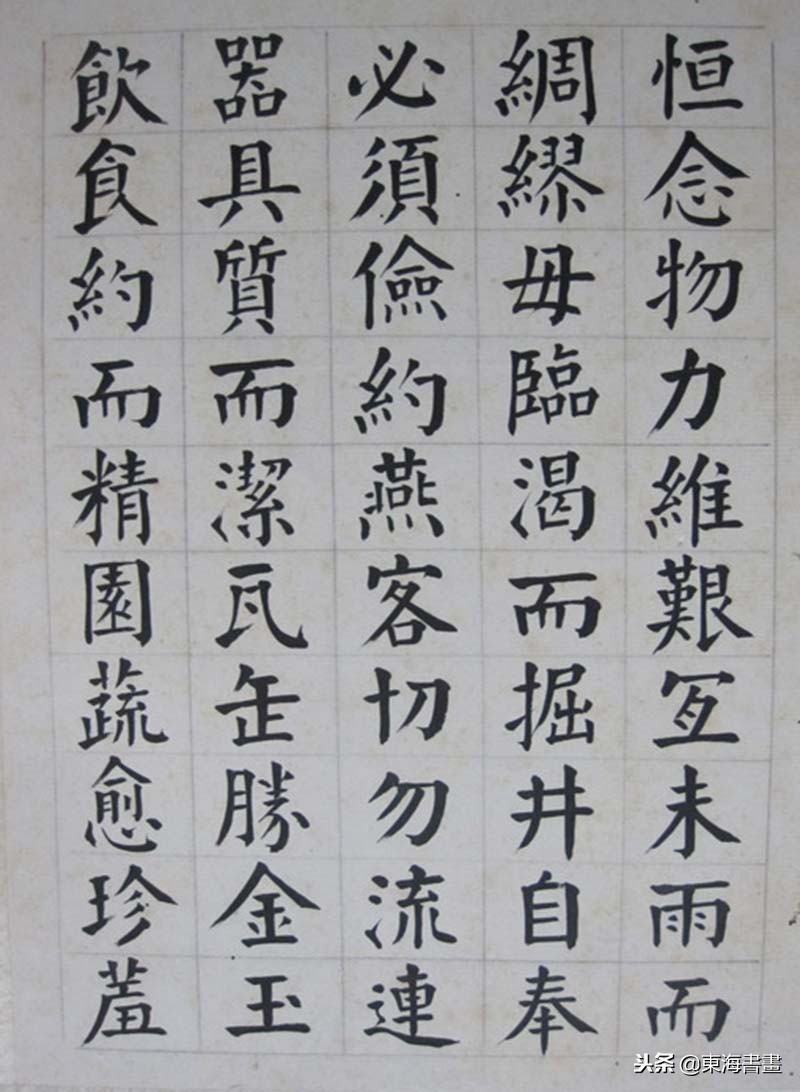 恒念物力維艱宜未雨而
綢繆毋臨渴而掘井自奉
必須儉約燕客切勿流連
器具質而潔瓦缶勝金玉
飲食約而精園蔬愈珍羞
头条 @東海書畫